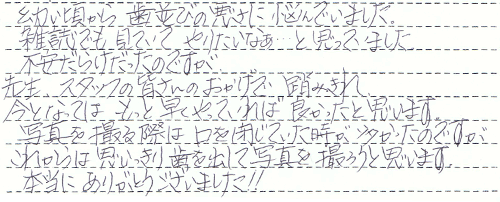 幼い頃から 歯並びの悪さに悩んでいました。
雑誌でも見ていて やりたいなぁ…と思っていました
不安だらけだったのですが
先生、スタッフの皆さんのおかげで 踏みきれ、
今となっては もっと早くやっていれば良かったと思います。
写真を撮る際は 口を閉じていた時が多かったのですが
これからは思いっきり歯を出して写真を撮ろうと思います。
本当に ありがとうございました!!